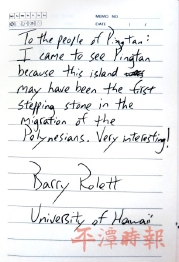 MEMO NO.
DATE / /
To the people of Pingtan:
I came to see Pingtan
because this island
may have been the first
stepping stone in the
migration of the
Polynesians. Very interesting!
Barry Rolett
University of Hawaii
平潭時報